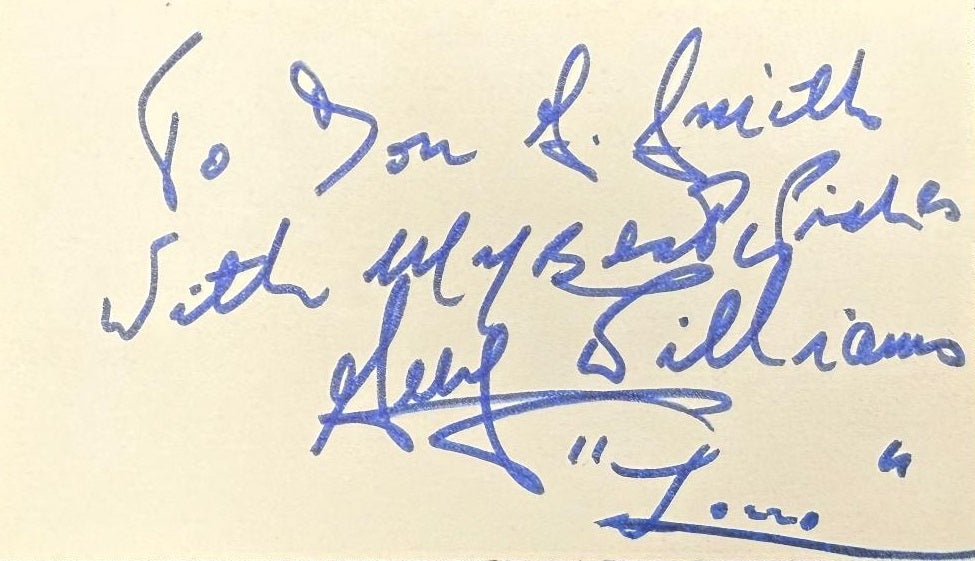 To Don G. Smith
With My Best Wishes
Guy Williams
"Zorro"